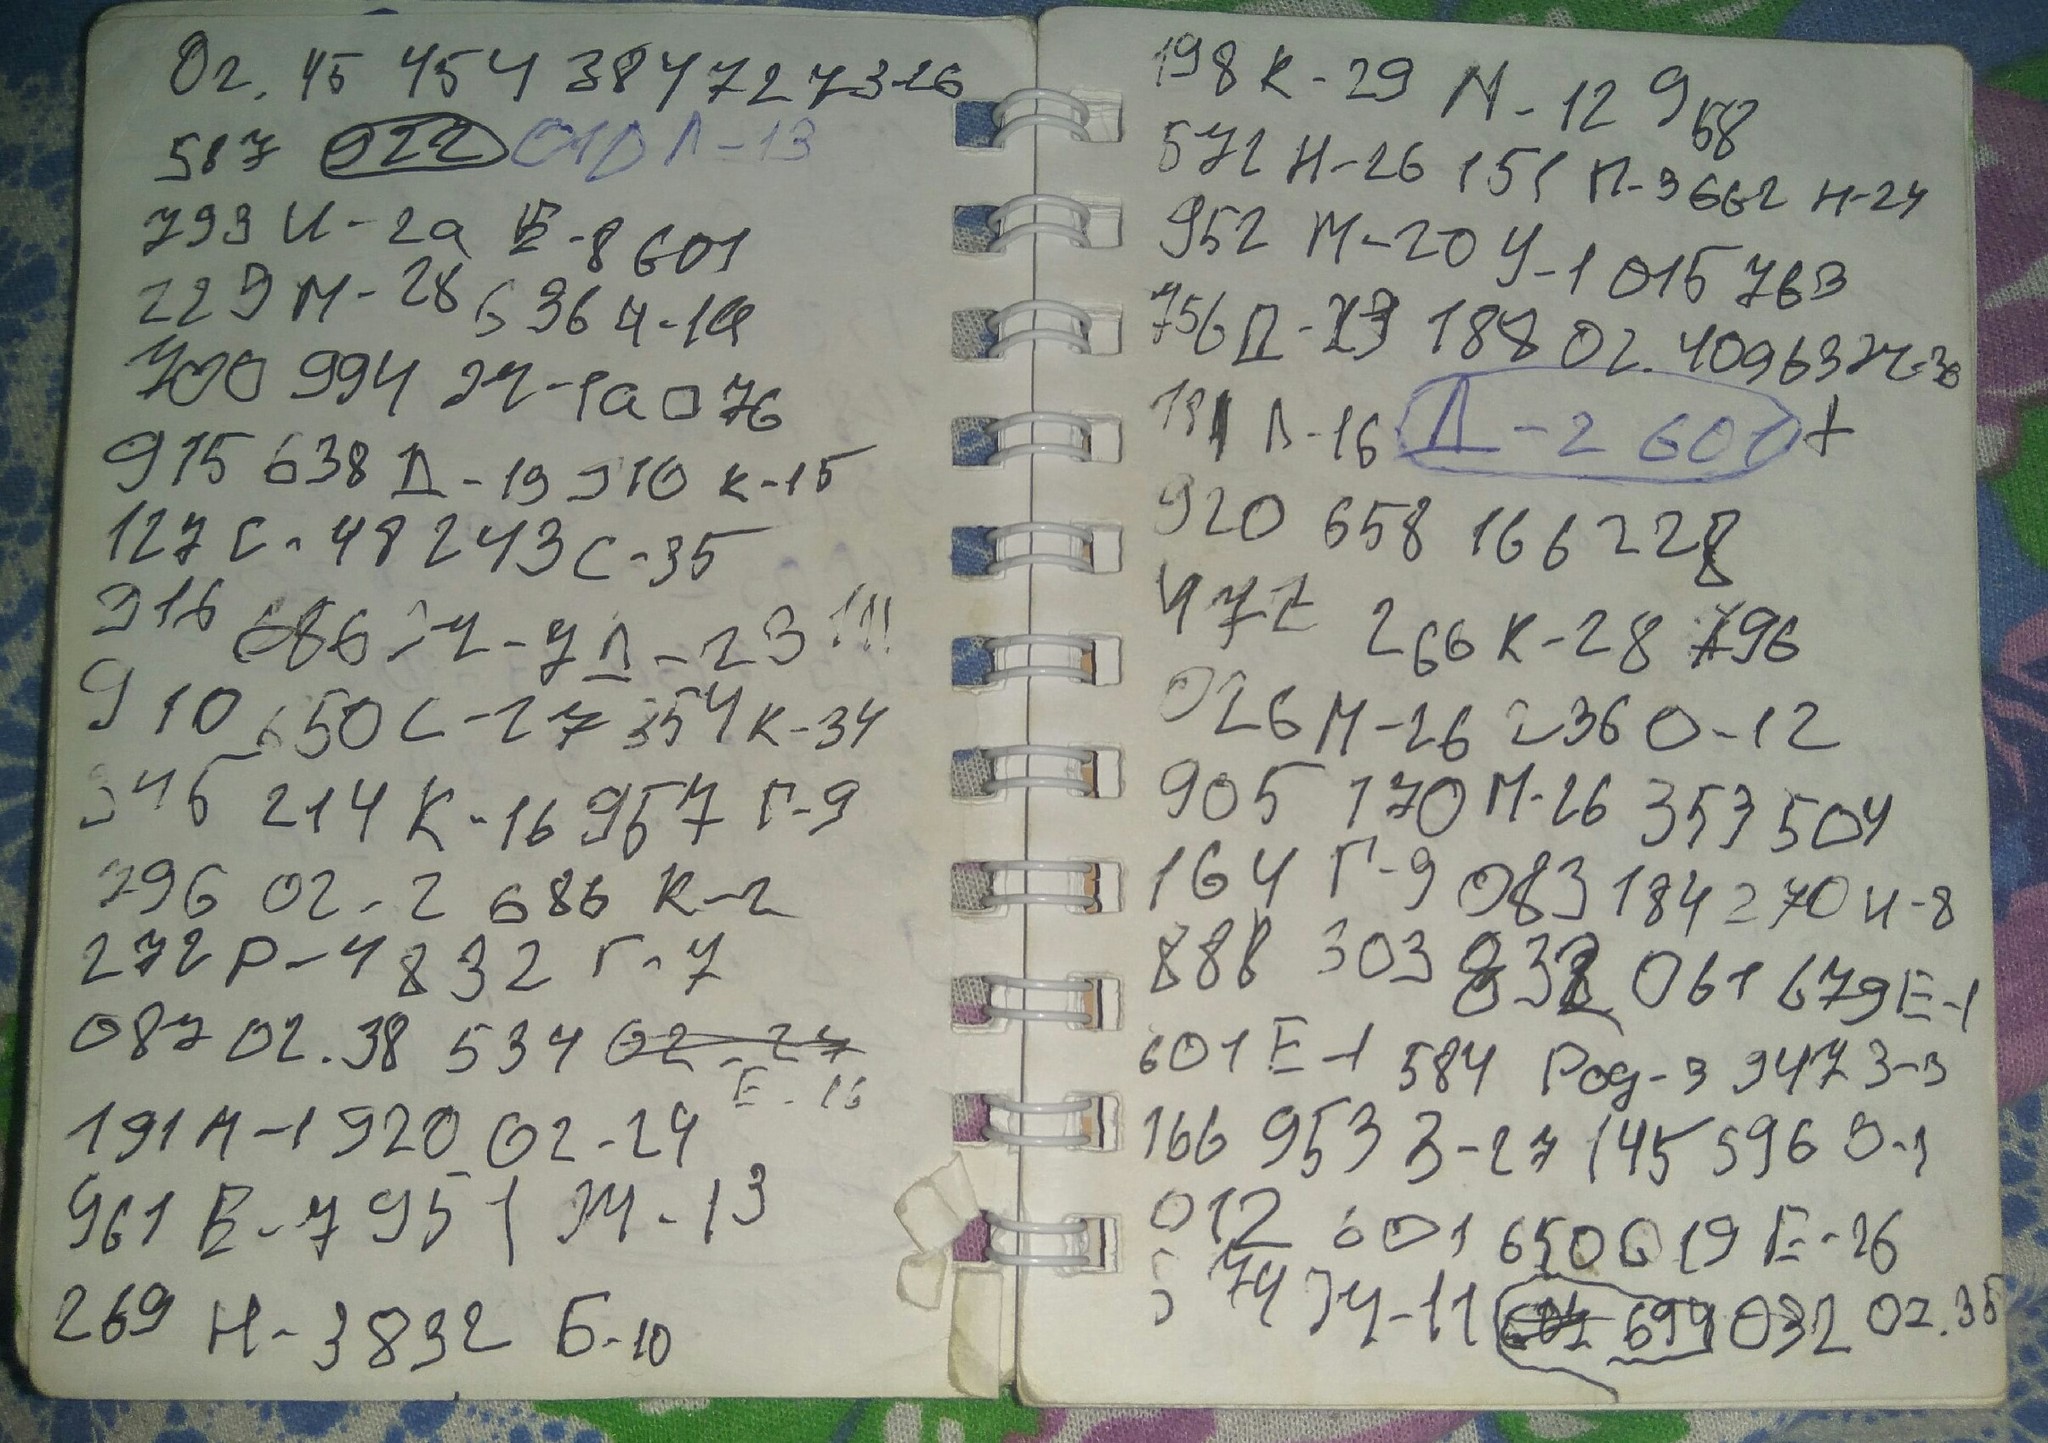 02. 45 454 384 727 73-26
587 922 010 Л-13
793 И-2а Е-8 601
229 М-28 5 36 4-1а
700 994 24-1а 0 76
915 638 Д-19 910 К-15
127 С-48 243 С-35
916 686 24-7 Д-23 !!!
910 650 С-27 354 К-34
346 214 К-16 957 Г-9
796 02-2 686 К-2
272 Р-4 832 Г-7
087 02.38 534 02-27
Е-16
191 А-1 920 02-24
961 Е-7 951 Ж-13
269 Н-3 832 Б-10
198 К-29 М-12 968
572 Н-26 151 П-3 662 Н-24
952 М-20 У-1 015 763
756 Д-23 188 02.40 963 24-30
191 Л-16 Д-2 601 +
920 658 166 228
477 266 К-28 796
026 М-26 236 О-12
905 170 М-26 353 504
164 Г-9 083 184 270 И-8
888 303 832 061 679 Е-1
601 Е-1 584 Род-3 947 З-3
166 953 З-27 145 596 О-1
012 601 650 619 Е-26
574 34-11 699 032 02.35